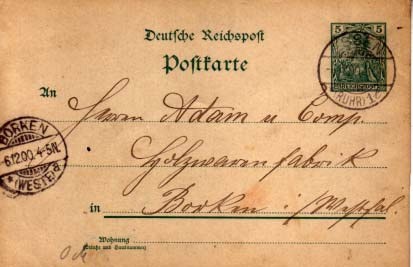 Deutsche Reichspost
5 5
Postkarte
(RUHR) 1
An
Herren Adam u Comp.
Holzwarenfabrik
BORKEN
6.12.00. 4-5N.
*(WESTF.)*
in Borken i/Westfal.
Wohnung
(Straße und Hausnummer)